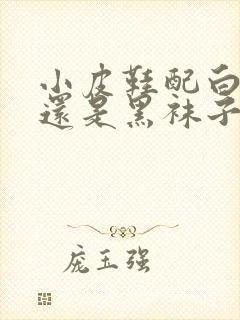 小皮鞋配白
還是黑袜子
庞玉强